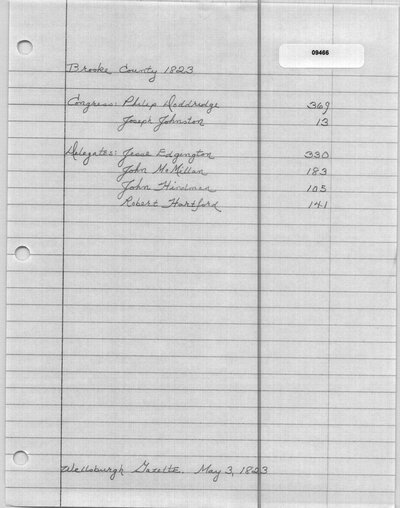 09466
Brooke County 1823
Congress: Philip Doddridge 369
Joseph Johnston 13
Delegates: Jesse Edgington 330
John McMillan 183
John Hindman 105
Robert Hartford 141
Wellsburgh Gazette. May 3, 1823